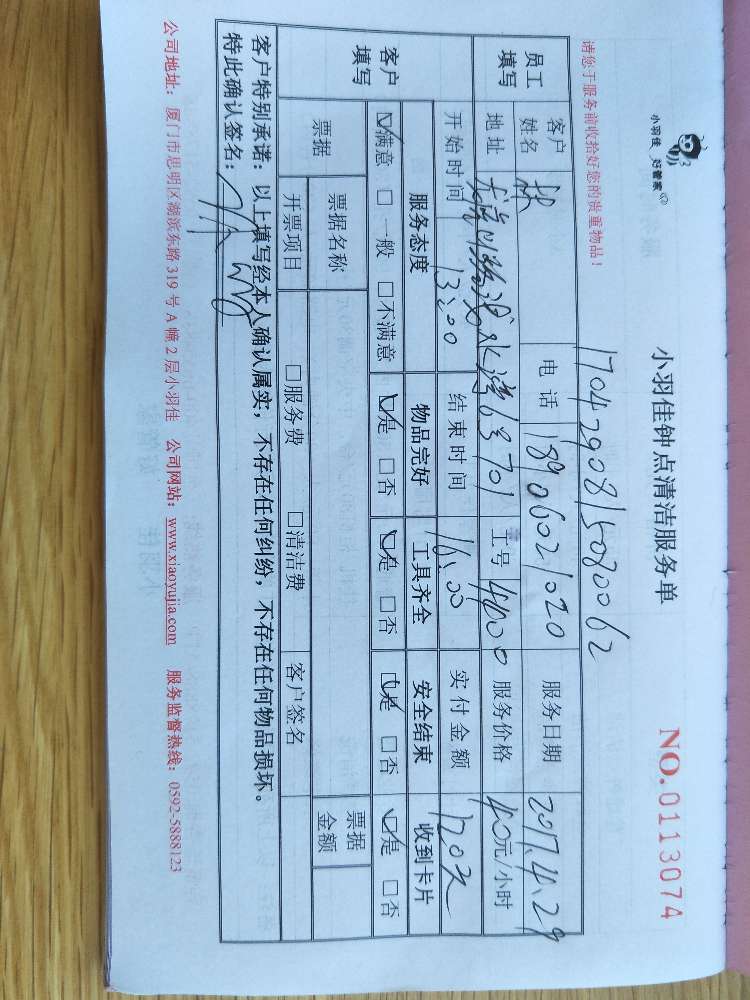 小羽佳 好管家
小羽佳钟点清洁服务单
NO.0113074
请您于服务前收拾好您的贵重物品！
1704290815080062
员工填写 客户姓名 林 电话 18906021020 服务日期 2017.4.29
地址 水湾6号701 工号 4800 服务价格 40元/小时
开始时间 13:00 结束时间 16:00 实付金额 120元
客户填写 服务态度 物品完好 工具齐全 安全结束 收到卡片
☑满意 □一般 □不满意 ☑是 □否 ☑是 □否 ☑是 □否 ☑是 □否
票据 票据名称 票据金额
开票项目 □服务费 □清洁费 客户签名
客户特别承诺：以上填写经本人确认属实，不存在任何纠纷，不存在任何物品损坏。
特此确认签名：
公司地址：厦门市思明区湖滨东路319号A幢2层小羽佳 公司网站：www.xiaoyujia.com 服务监督热线：0592-5888123